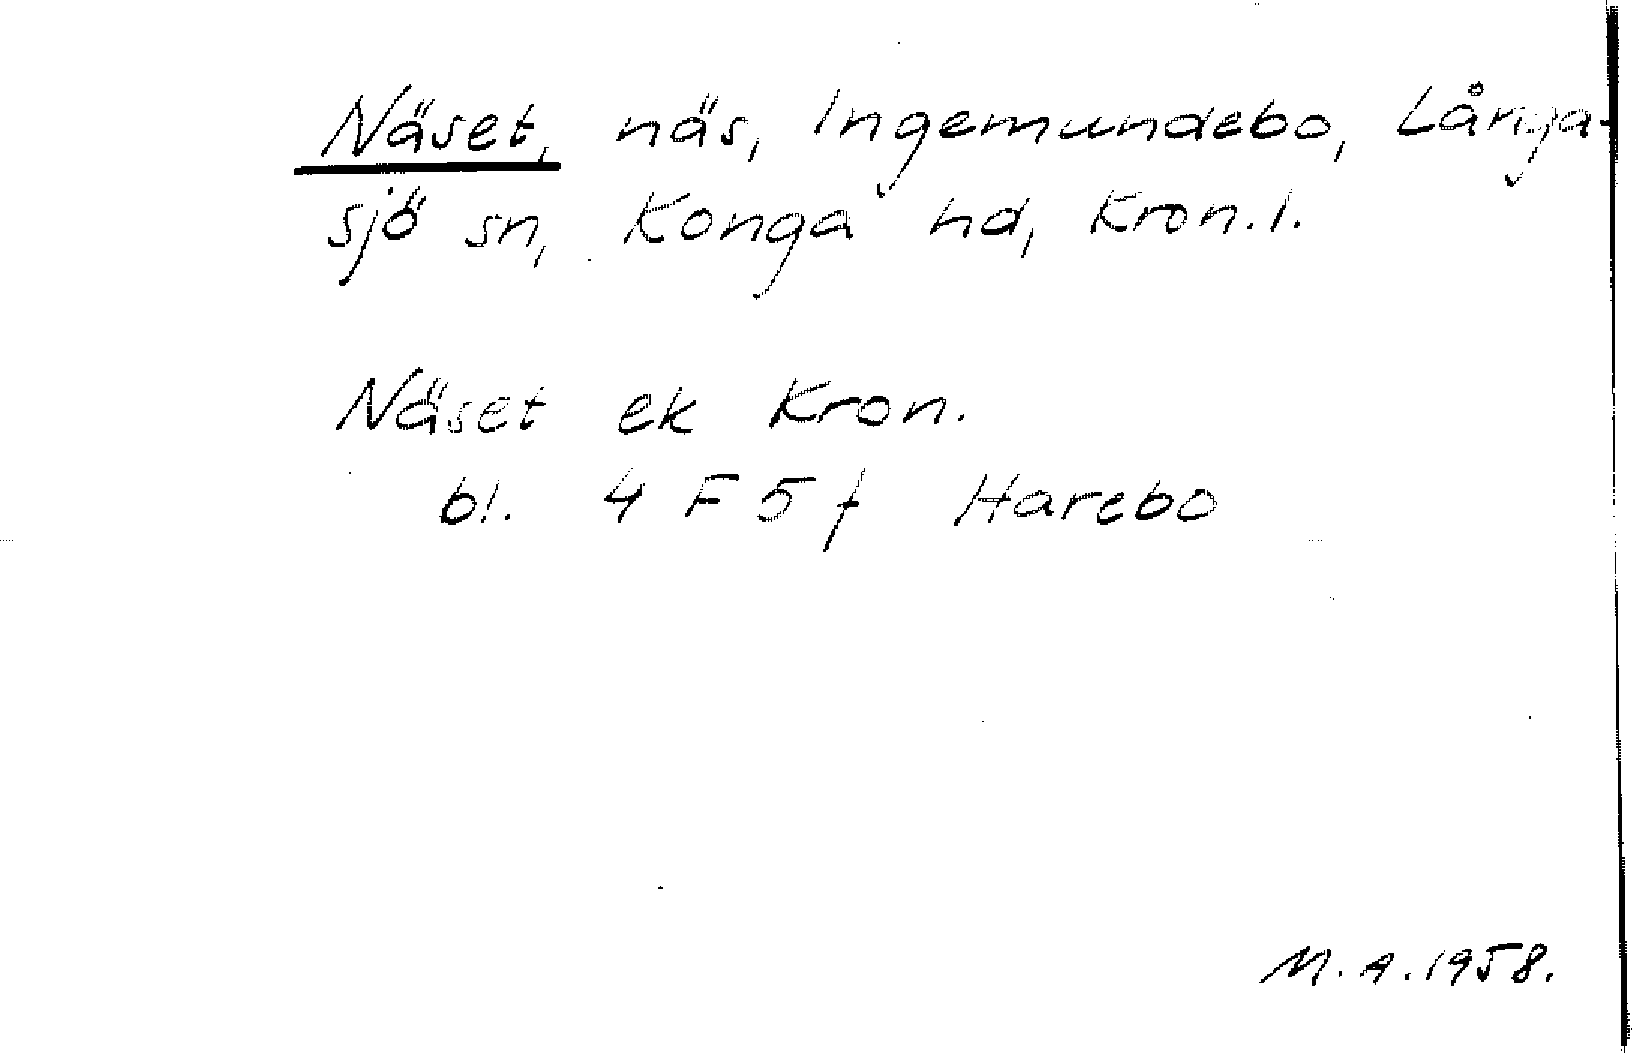 Näset, näs, Ingemundebo, Långa-
sjö sn, Konga hd, Kron.l.
Näset ek Kron.
bl. 4 F 5 f Harebo
M.A.1958.